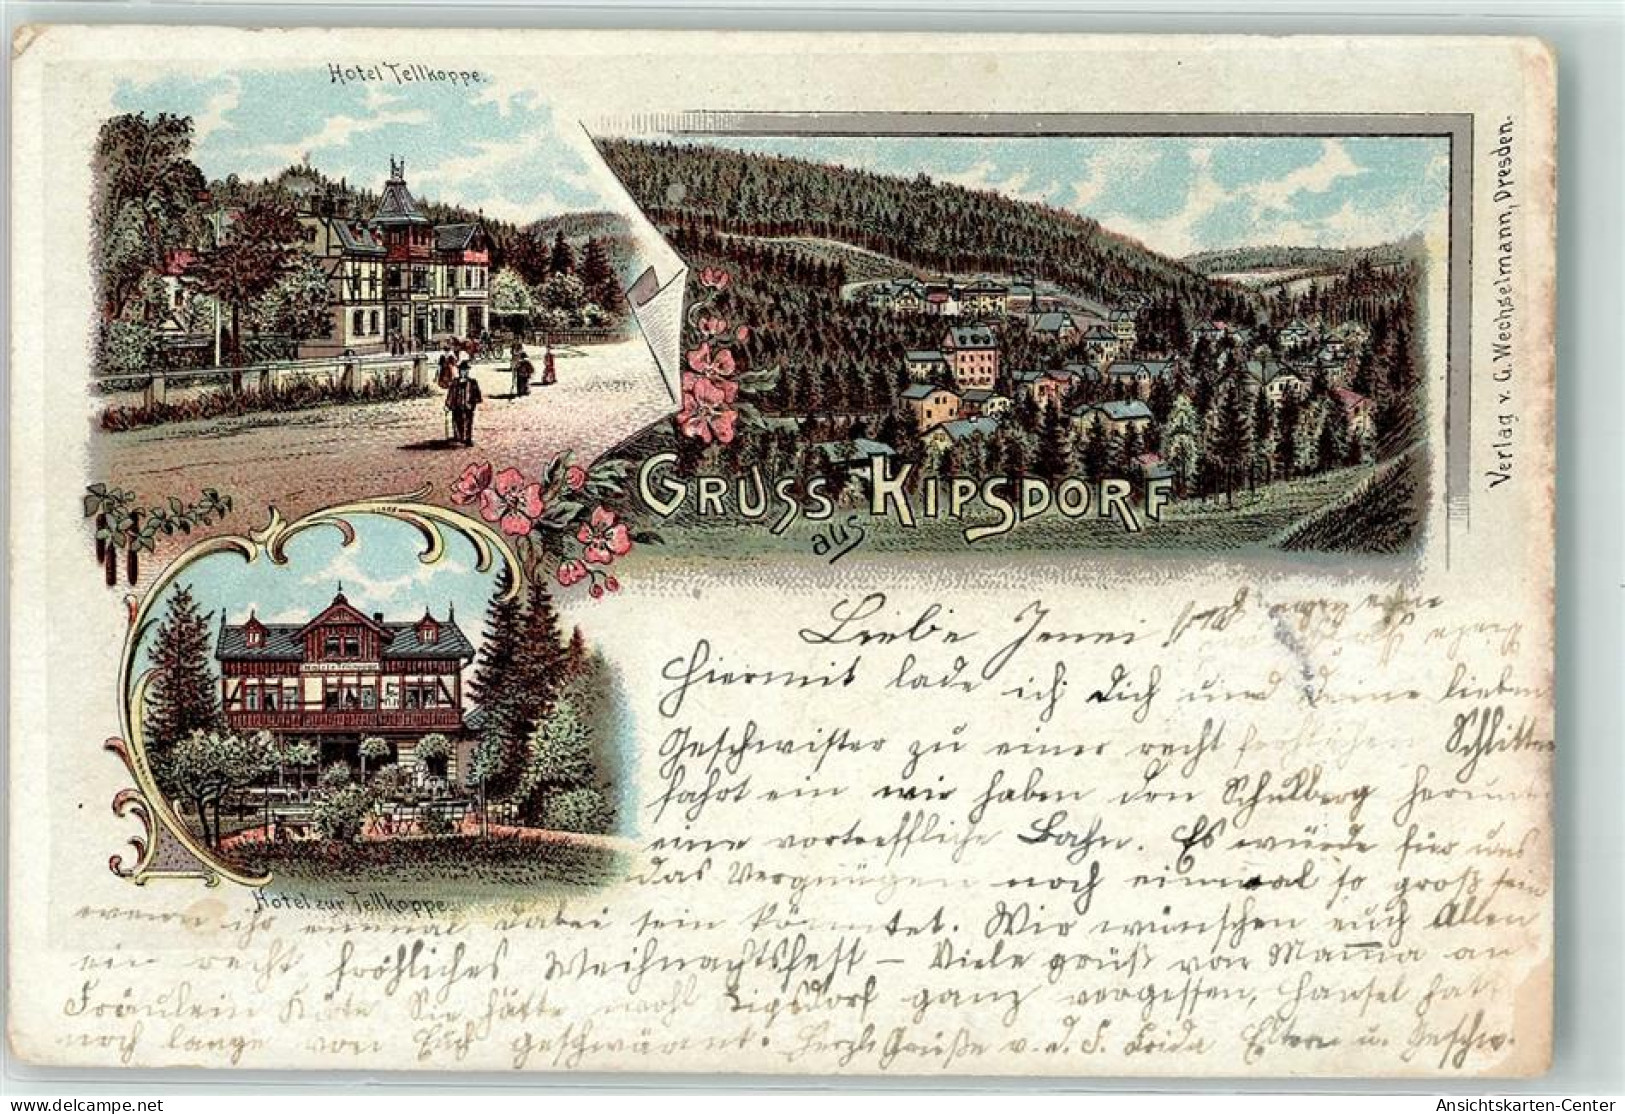 Hotel Tellkoppe.
Verlag v. G. Wechselmann, Dresden.
GRUSS aus KIPSDORF
Hotel zur Tellkoppe.
Liebe Jenni
Hiermit lade ich Dich und Deine lieben
Geschwister zu einer recht fröhlichen Schlitten
fahrt ein wir haben den Schulberg herunter
eine vortreffliche Bahn. Es würde für uns
das Vergnügen noch einmal so groß sein
wenn ihr einmal dabei sein könntet. Wir wünschen euch Allen
ein recht fröhliches Weihnachtsfest – Viele grüß von Mama an
Fräulein Käte Sie hätte wohl Kipsdorf ganz vergessen, Hansel hat
noch lange von Euch geschwärmt. Herzl. Grüße v. d. F. Frida Eltern u. Geschw.
Ansichtskarten-Center
www.delcampe.net